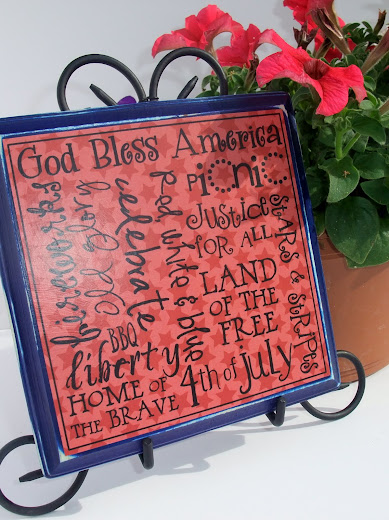 God Bless America
fireworks
old glory
celebrate
red white & blue
PicNic
Justice
for all
Stars & Stripes
Land
of the
Free
BBQ
liberty
Home of
the Brave
4th of July